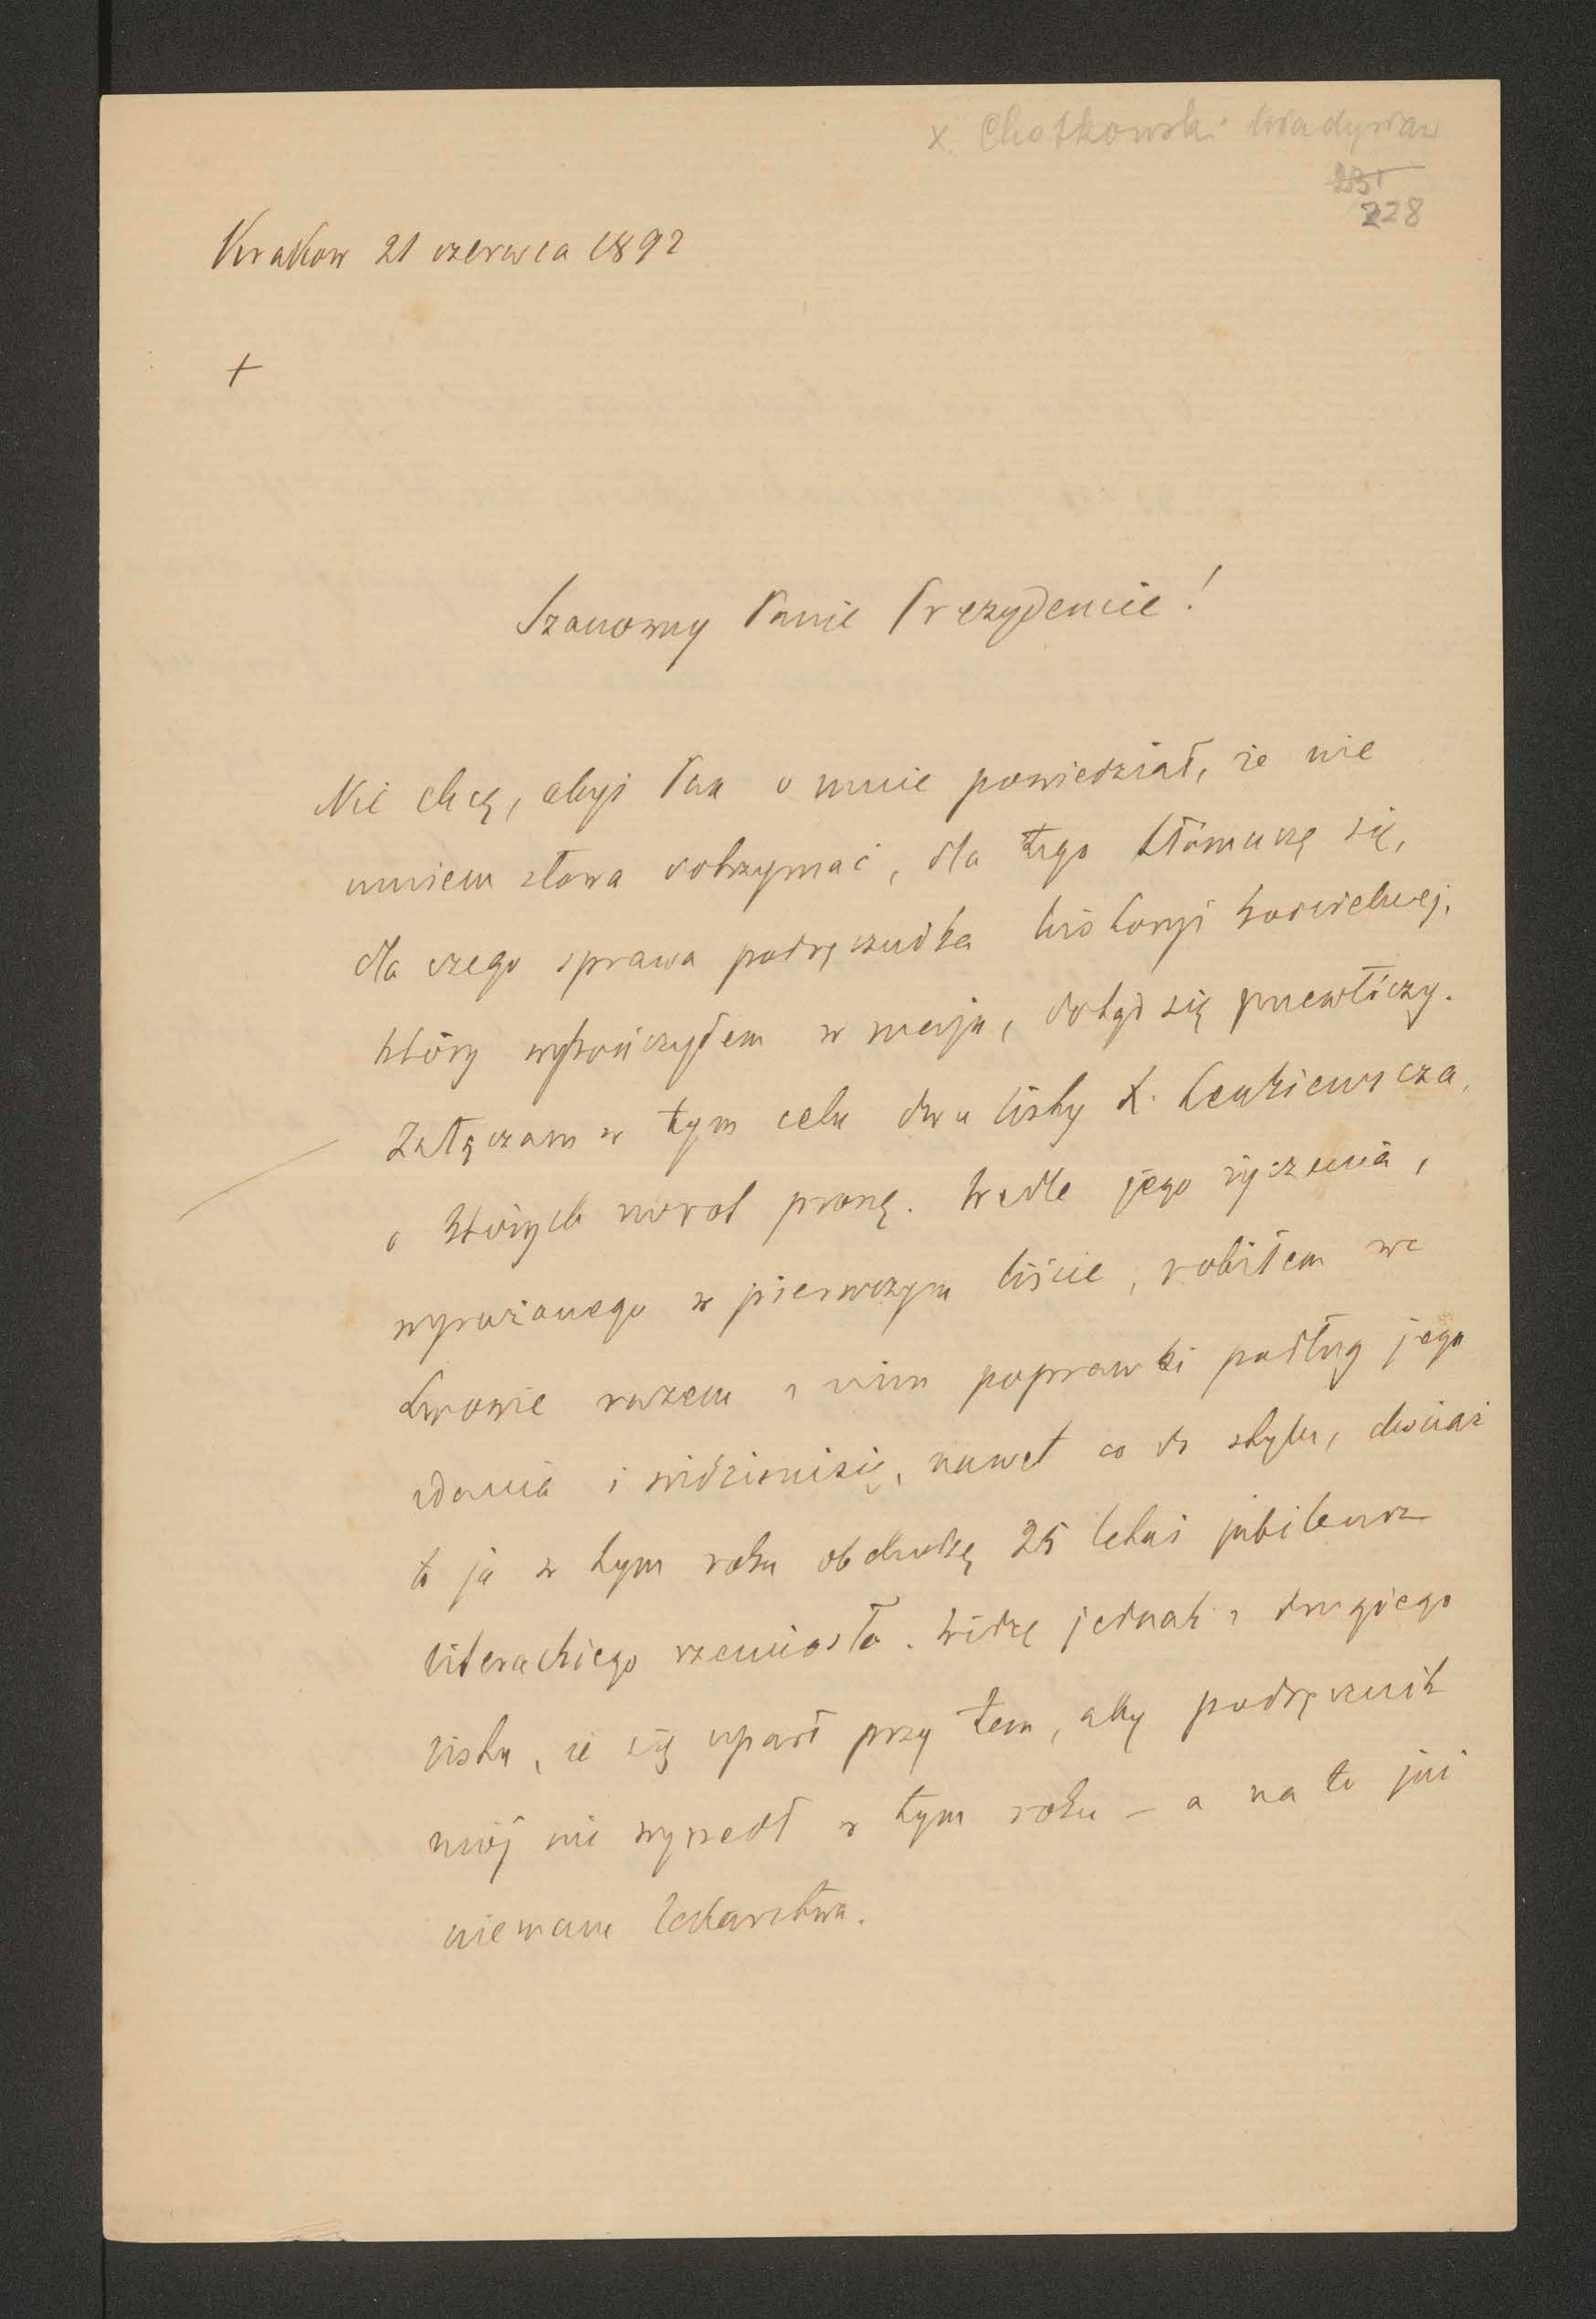 X. Chotkowski Władysław
231
228
Kraków 21 czerwca 1892
+
Szanowny Panie Prezydencie!
Nie chcę, abyś Pan o mnie powiedział, że nie
umiem słowa dotrzymać, dla tego tłómaczę się,
dla czego sprawa podręcznika historyi kościelnej,
który wykończyłem w maju, dotąd się przewłóczy.
Załączam w tym celu dwa listy X. Lenkiewicza,
o których zwrot proszę. Wedle jego życzenia,
wyrażonego w pierwszym liście, robiłem we
Lwowie razem z nim poprawki podług jego
zdania i widzimisię, nawet co do stylu, chociaż
to ja w tym roku obchodzę 25 letni jubileusz
literackiego rzemiosła. Widzę jednak z drugiego
listu, że się uparł przy tem, aby podręcznik
mój nie wyszedł w tym roku – a na to już
niemam lekarstwa.